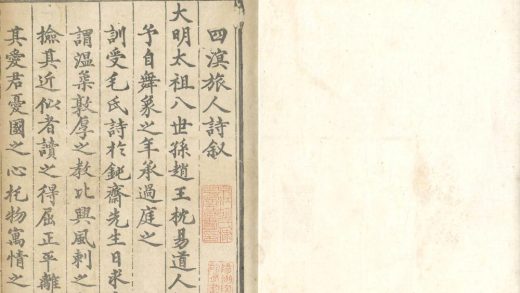 四溟旅人詩叙
大明太祖八世孫趙王枕易道人
予自舞象之年承過庭之
訓受毛氏詩於鈍齋先生日求
謂溫柔敦厚之教比興風刺之
撿其近似者讀之得屈正平離
其愛君憂國之心托物寓情之